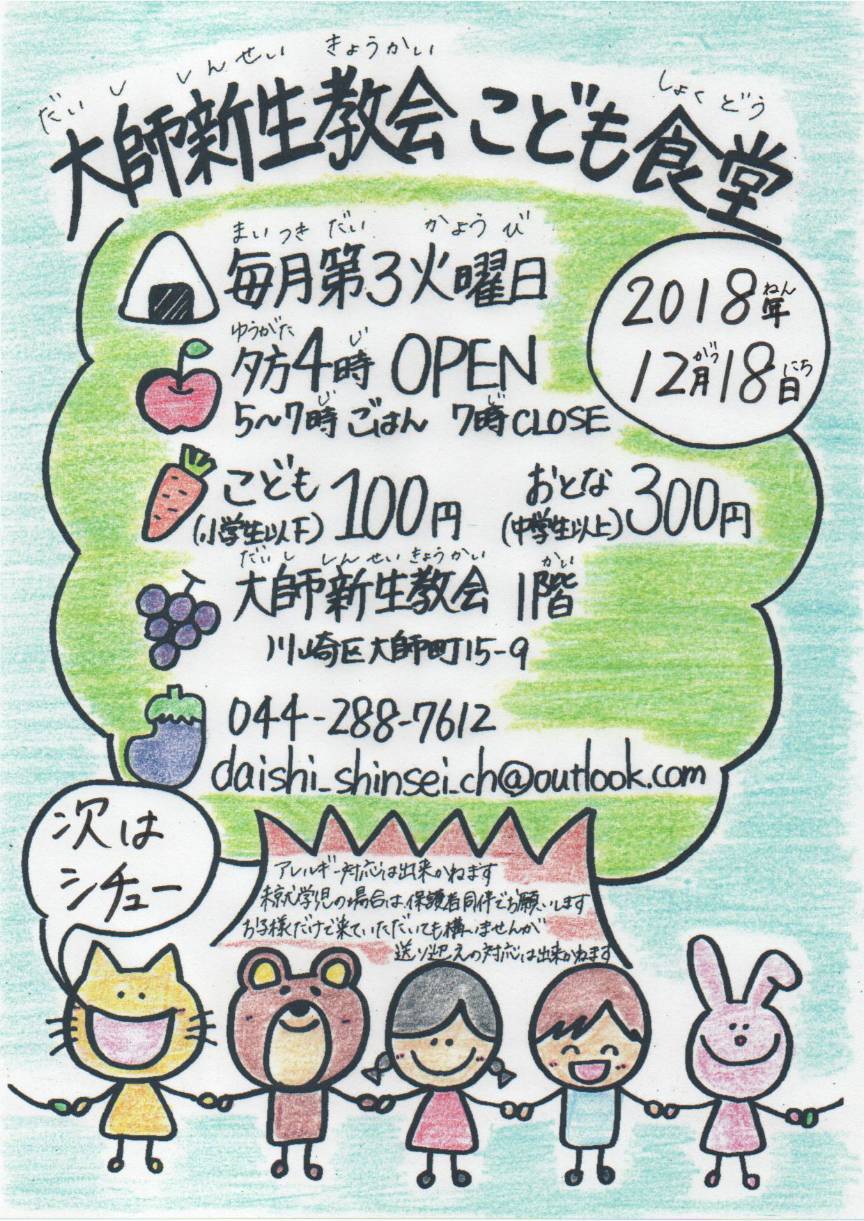 だいし しんせい きょうかい しょくどう
大師新生教会 こども食堂
まいつき だい かようび
毎月第3火曜日
2018年
ねん
12月18日
がつ にち
ゆうがた じ
夕方4時 OPEN
じ じ
5〜7時 ごはん 7時 CLOSE
こども 100円 おとな 300円
(小学生以下) (中学生以上)
だいし しんせいきょうかい かい
大師新生教会 1階
川崎区大師町15-9
044-288-7612
daishi_shinsei_ch@outlook.com
次は
シチュー
アレルギー対応は出来かねます
未就学児の場合は、保護者同伴でお願いします
お子様だけで来ていただいても構いませんが
送り迎えの対応は出来かねます